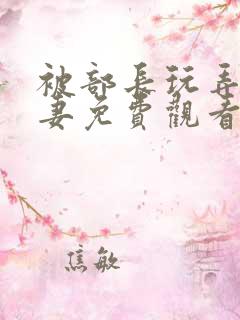 被部长玩弄
妻免費觀看
焦敏